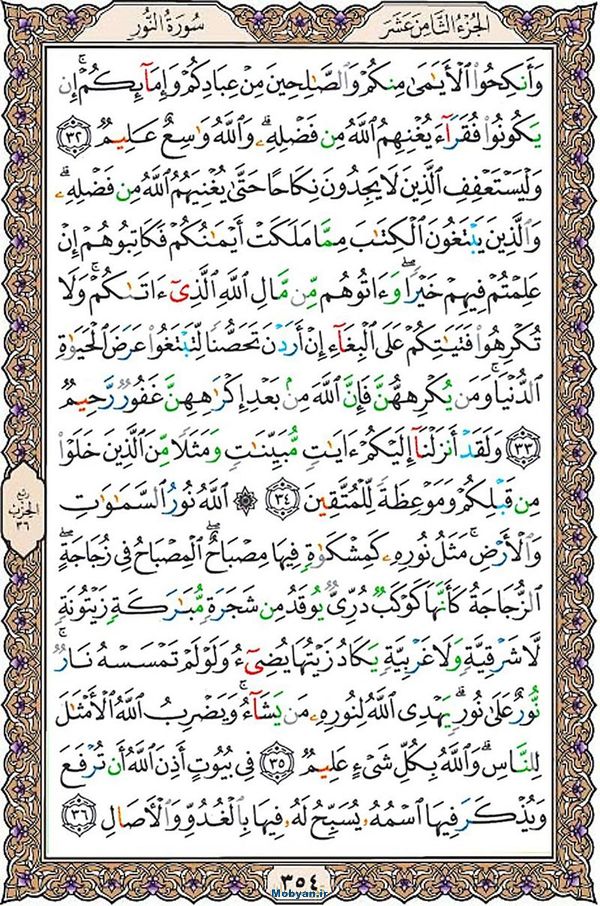 الجُزءُ الثَّامِنَ عَشَرَ
سُورَةُ النُّورِ
وَأَنكِحُوا۟ ٱلْأَيَـٰمَىٰ مِنكُمْ وَٱلصَّـٰلِحِينَ مِنْ عِبَادِكُمْ وَإِمَآئِكُمْ ۚ إِن
يَكُونُوا۟ فُقَرَآءَ يُغْنِهِمُ ٱللَّهُ مِن فَضْلِهِۦ ۗ وَٱللَّهُ وَٰسِعٌ عَلِيمٌ ٣٢
وَلْيَسْتَعْفِفِ ٱلَّذِينَ لَا يَجِدُونَ نِكَاحًا حَتَّىٰ يُغْنِيَهُمُ ٱللَّهُ مِن فَضْلِهِۦ ۗ
وَٱلَّذِينَ يَبْتَغُونَ ٱلْكِتَـٰبَ مِمَّا مَلَكَتْ أَيْمَـٰنُكُمْ فَكَاتِبُوهُمْ إِنْ
عَلِمْتُمْ فِيهِمْ خَيْرًا ۖ وَءَاتُوهُم مِّن مَّالِ ٱللَّهِ ٱلَّذِىٓ ءَاتَىٰكُمْ ۚ وَلَا
تُكْرِهُوا۟ فَتَيَـٰتِكُمْ عَلَى ٱلْبِغَآءِ إِنْ أَرَدْنَ تَحَصُّنًا لِّتَبْتَغُوا۟ عَرَضَ ٱلْحَيَوٰةِ
ٱلدُّنْيَا ۚ وَمَن يُكْرِههُّنَّ فَإِنَّ ٱللَّهَ مِنۢ بَعْدِ إِكْرَٰهِهِنَّ غَفُورٌ رَّحِيمٌ
٣٣ وَلَقَدْ أَنزَلْنَآ إِلَيْكُمْ ءَايَـٰتٍ مُّبَيِّنَـٰتٍ وَمَثَلًا مِّنَ ٱلَّذِينَ خَلَوْا۟
مِن قَبْلِكُمْ وَمَوْعِظَةً لِّلْمُتَّقِينَ ٣٤ ۞ ٱللَّهُ نُورُ ٱلسَّمَـٰوَٰتِ
وَٱلْأَرْضِ ۚ مَثَلُ نُورِهِۦ كَمِشْكَوٰةٍ فِيهَا مِصْبَاحٌ ۖ ٱلْمِصْبَاحُ فِى زُجَاجَةٍ ۖ
ٱلزُّجَاجَةُ كَأَنَّهَا كَوْكَبٌ دُرِّىٌّ يُوقَدُ مِن شَجَرَةٍ مُّبَـٰرَكَةٍ زَيْتُونَةٍ
لَّا شَرْقِيَّةٍ وَلَا غَرْبِيَّةٍ يَكَادُ زَيْتُهَا يُضِىٓءُ وَلَوْ لَمْ تَمْسَسْهُ نَارٌ ۚ
نُّورٌ عَلَىٰ نُورٍ ۗ يَهْدِى ٱللَّهُ لِنُورِهِۦ مَن يَشَآءُ ۚ وَيَضْرِبُ ٱللَّهُ ٱلْأَمْثَـٰلَ
لِلنَّاسِ ۗ وَٱللَّهُ بِكُلِّ شَىْءٍ عَلِيمٌ ٣٥ فِى بُيُوتٍ أَذِنَ ٱللَّهُ أَن تُرْفَعَ
وَيُذْكَرَ فِيهَا ٱسْمُهُۥ يُسَبِّحُ لَهُۥ فِيهَا بِٱلْغُدُوِّ وَٱلْـَٔاصَالِ ٣٦
ربع
الحزب
٣٦
٣٥٤
Mobyan.ir